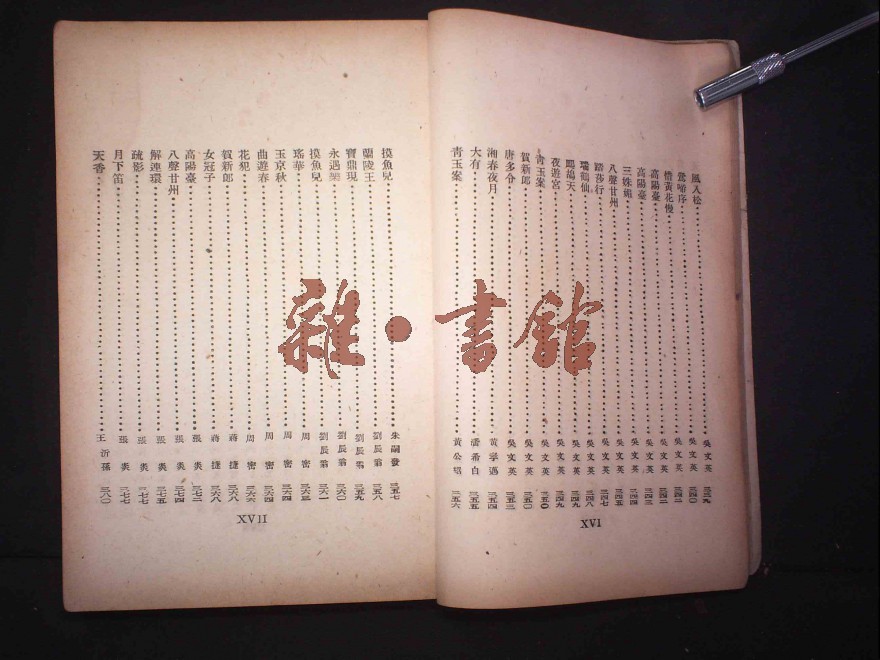 風入松 吳文英 二三九
鶯啼序 吳文英 二四〇
惜黃花慢 吳文英 二四二
高陽臺 吳文英 二四三
高陽臺 吳文英 二四四
三姝媚 吳文英 二四五
八聲甘州 吳文英 二四七
踏莎行 吳文英 二四八
瑞鶴仙 吳文英 二四九
鷓鴣天 吳文英 二四九
夜遊宮 吳文英 二五〇
青玉案 吳文英
賀新郎 吳文英 二五〇
唐多令 吳文英 二五三
湘春夜月 黃孝邁 二五四
大有 潘希白 二五五
青玉案 黃公紹 二五六
XVI
摸魚兒 朱嗣發 二五七
蘭陵王 劉辰翁 二五八
寶鼎現 劉辰翁 二五九
永遇樂 劉辰翁 二六〇
摸魚兒 劉辰翁 二六一
瑤華 周密 二六三
玉京秋 周密 二六四
曲遊春 周密 二六四
花犯 周密 二六六
賀新郎 蔣捷 二六八
女冠子 蔣捷 二六八
高陽臺 張炎 二七二
八聲甘州 張炎 二七四
解連環 張炎 二七五
疏影 張炎 二七七
月下笛 張炎 二七七
天香 王沂孫 二八〇
XVII
雜·書館